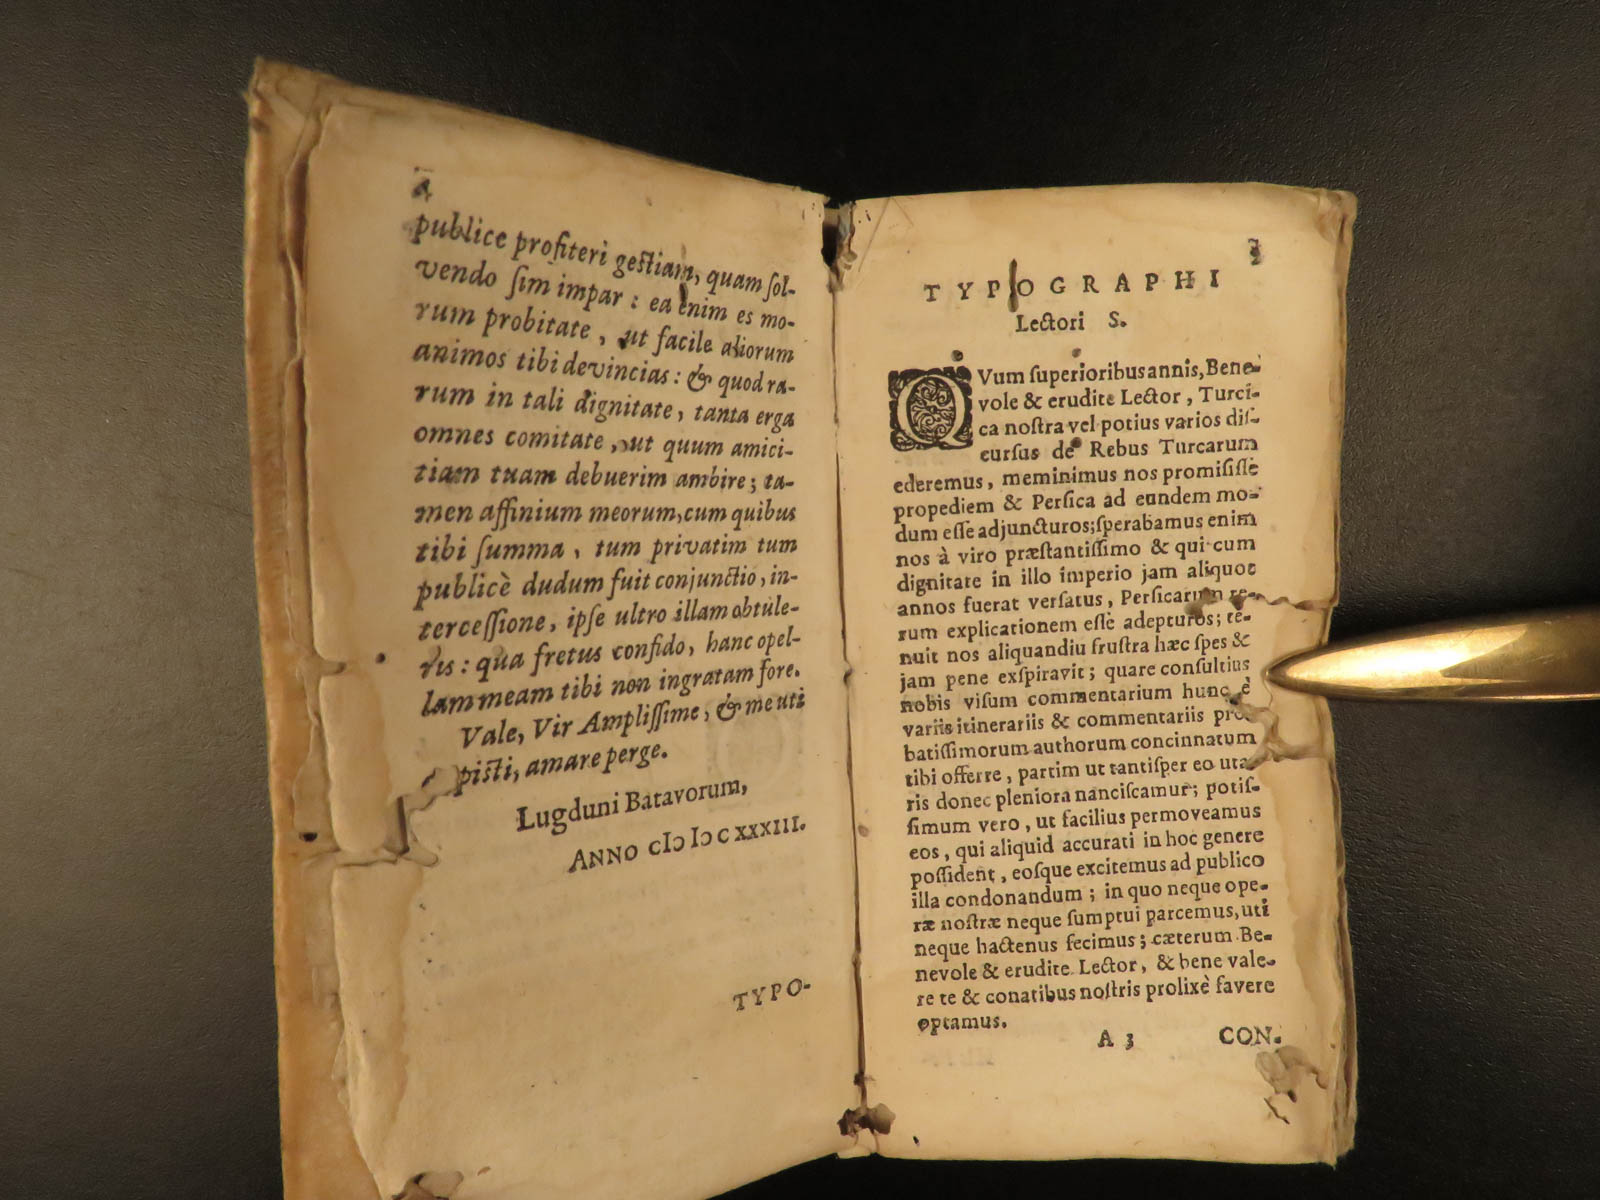 4
publice profiteri gestiam, quam sol-
vendo sim impar : ea enim es mo-
rum probitate, ut facile aliorum
animos tibi devincias : & quod ra-
rum in tali dignitate, tanta erga
omnes comitate, ut quum amici-
tiam tuam debuerim ambire; ta-
men affinium meorum, cum quibus
tibi summa, tum privatim tum
publicè dudum fuit conjunctio, in-
tercessione, ipse ultro illam obtule-
ris : qua fretus confido, hanc opel-
lam meam tibi non ingratam fore.
Vale, Vir Amplissime, & me uti
pisti, amare perge.
Lugduni Batavorum,
ANNO cIↄ Iↄ c XXXIII.
TYPO-
3
TYPOGRAPHI
Lectori S.
QVum superioribus annis, Bene-
vole & erudite Lector, Turci-
ca nostra vel potius varios dis-
cursus de Rebus Turcarum
ederemus, meminimus nos promisisse
propediem & Persica ad eundem mo-
dum esse adjuncturos; sperabamus enim
nos à viro præstantissimo & qui cum
dignitate in illo imperio jam aliquot
annos fuerat versatus, Persicarum re-
rum explicationem esse adepturos; te-
nuit nos aliquandiu frustra hæc spes &
jam pene exspiravit; quare consultius
nobis visum commentarium hunc è
variis itinerariis & commentariis pro-
batissimorum authorum concinnatum
tibi offerre, partim ut tantisper eo uta-
ris donec pleniora nanciscamur; potis-
simum vero, ut facilius permoveamus
eos, qui aliquid accurati in hoc genere
possident, eosque excitemus ad publico
illa condonandum; in quo neque ope-
ræ nostræ neque sumptui parcemus, uti
neque hactenus fecimus; cæterum Be-
nevole & erudite Lector, & bene vale-
re te & conatibus nostris prolixè favere
optamus.
A 3 CON-